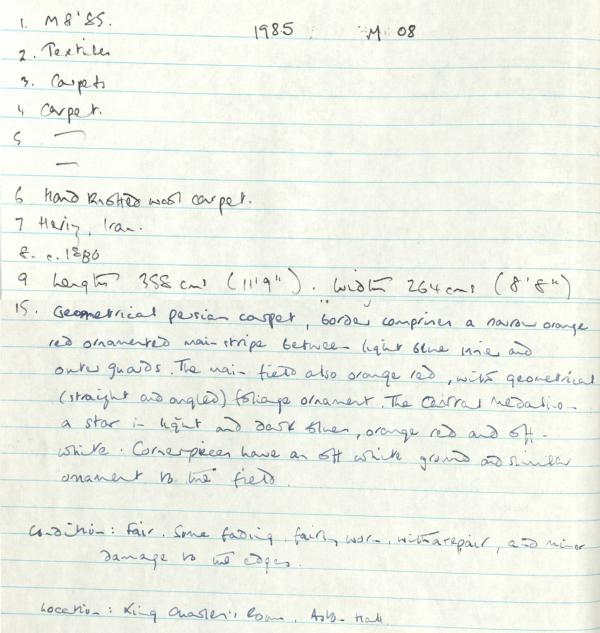 1. M8'85.
1985 M 08
2. Textiles
3. Carpets
4 Carpet.
5 —
—
6 Hand knotted wool carpet.
7 Heriz, Iran.
8. c.1880
9 Length 358 cms (11'9"). Width 264 cms (8'8")
15. Geometrical persian carpet, border comprises a narrow orange
red ornamented main stripe between light blue inner and
outer guards. The main field also orange red, with geometrical
(straight and angled) foliage ornament. The Central medallion
a star in light and dark blues, orange red and off-
white. Cornerpieces have an off white ground and similar
ornament to the field.
Condition: Fair. Some fading, fairly worn, with a repair, and minor
damage to the edges.
Location: King Charles's Room, Aston Hall